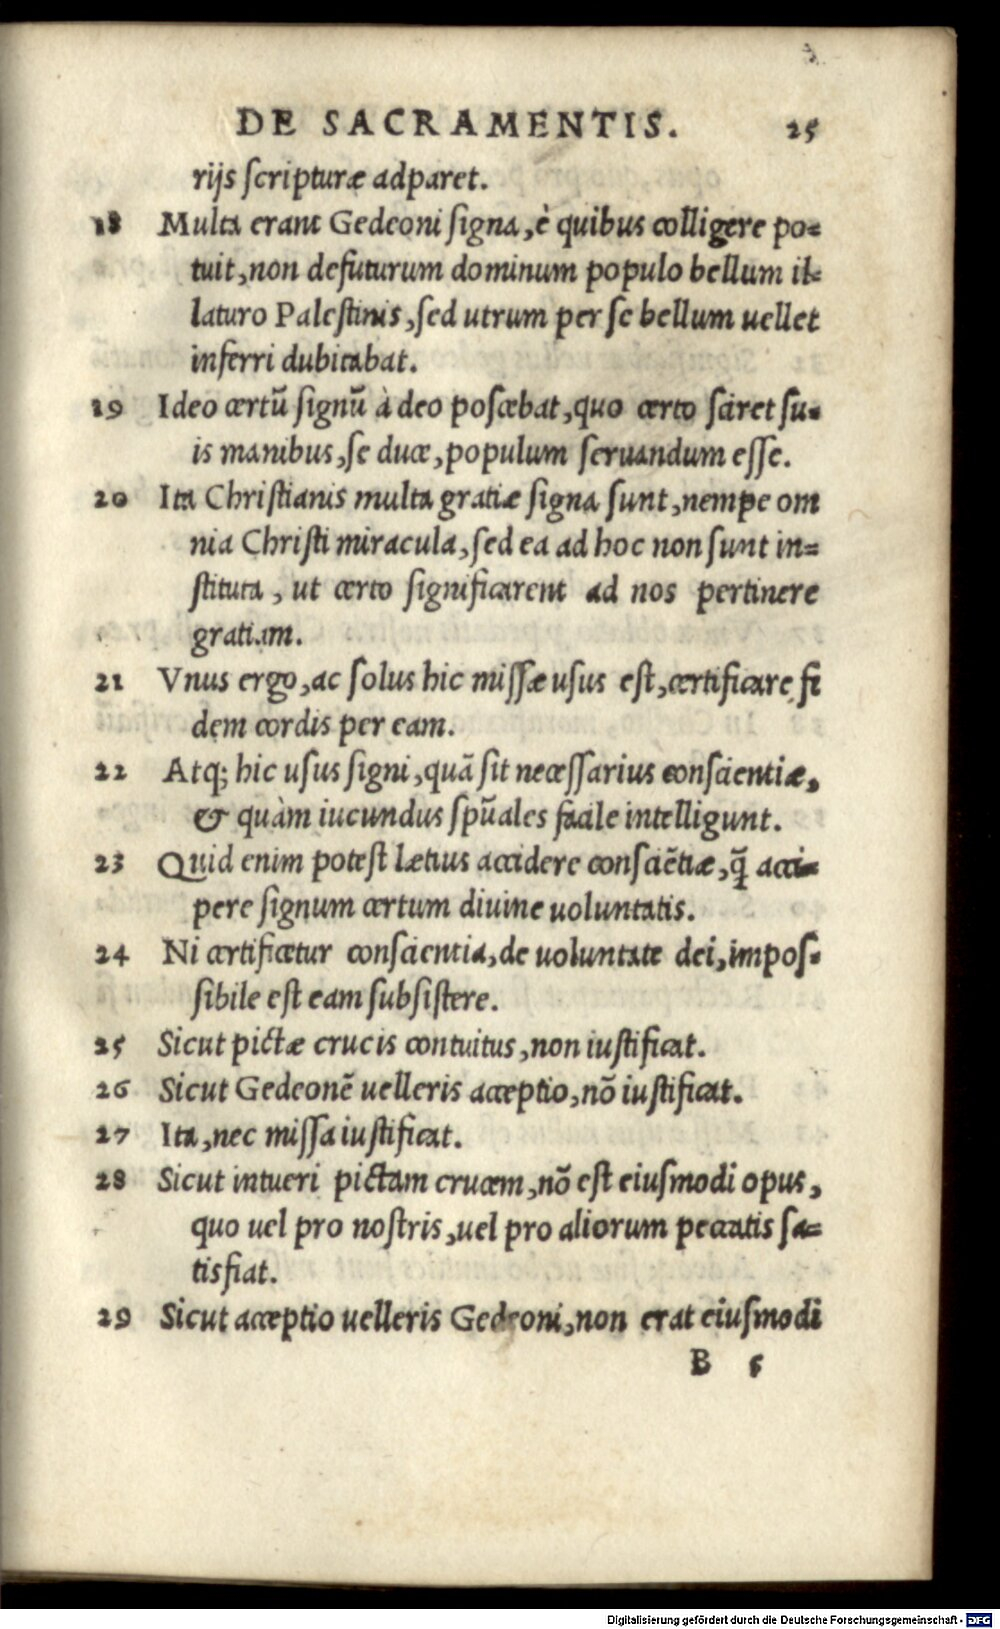 DE SACRAMENTIS. 25
rijs scripturæ adparet.
18 Multa erant Gedeoni signa, è quibus colligere po=
tuit, non defuturum dominum populo bellum il=
laturo Palestinis, sed utrum per se bellum uellet
inferri dubitabat.
19 Ideo certū signū à deo poscebat, quo certo sciret su=
is manibus, se duce, populum seruandum esse.
20 Ita Christianis multa gratiæ signa sunt, nempe om
nia Christi miracula, sed ea ad hoc non sunt in=
stituta, ut certo significarent ad nos pertinere
gratiam.
21 Vnus ergo, ac solus hic missæ usus est, certificare fi
dem cordis per eam.
22 Atq; hic usus signi, quā sit necessarius conscientiæ,
& quàm iucundus spūales facile intelligunt.
23 Quid enim potest lætius accidere consciētiæ, q̄ acci=
pere signum certum diuine uoluntatis.
24 Ni certificetur conscientia, de uoluntate dei, impos=
sibile est eam subsistere.
25 Sicut pictæ crucis contuitus, non iustificat.
26 Sicut Gedeonē uelleris acceptio, nō iustificat.
27 Ita, nec missa iustificat.
28 Sicut intueri pictam crucem, nō est eiusmodi opus,
quo uel pro nostris, uel pro aliorum peccatis sa=
tisfiat.
29 Sicut acceptio uelleris Gedeoni, non erat eiusmodi
B 5
Digitalisierung gefördert durch die Deutsche Forschungsgemeinschaft - DFG